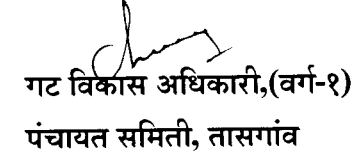 गट विकास अधिकारी,(वर्ग-१)
पंचायत समिती, तासगांव